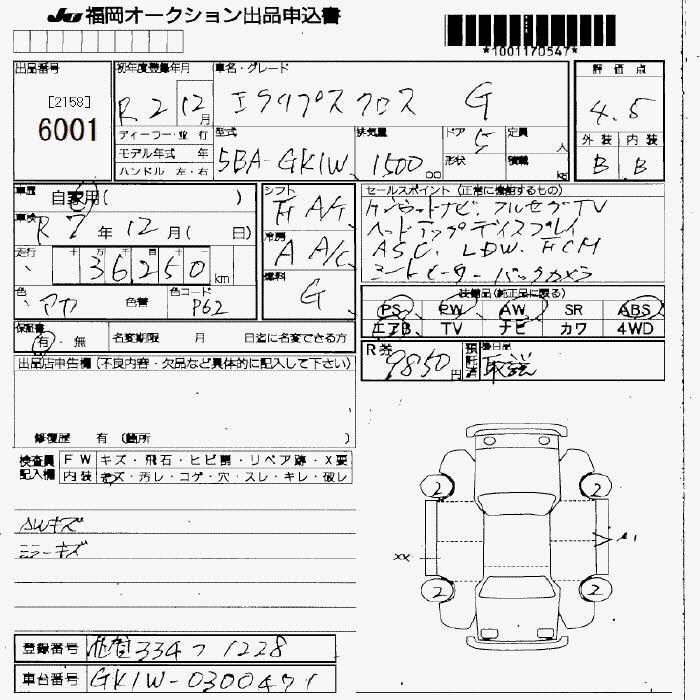 JU 福岡オークション出品申込書
*1001170547*
出品番号
[2158]
6001
初年度登録年月
R 2 12 月
車名・グレード
エクリプスクロス G
評価点
4.5
外装 内装
B B
ディーラー・並行
モデル年式 年
ハンドル 左・右
型式
5BA-GK1W
排気量
1500 cc
ドア 5
形状
定員 人
積載 kg
車歴
自家用( )
車検
R 7 年 12 月( 日)
走行
十 万 千 百 十 一
36250 km
色
アカ 色替
色コード
P62
シフト
FA A/T
冷房
A A/C
燃料
G
セールスポイント (正常に機能するもの)
ケンウッドナビ. フルセグTV
ヘッドアップディスプレイ
ASC. LDW. FCM
シートヒーター バックカメラ
装備品(純正品に限る)
PS PW AW SR ABS
エアB TV ナビ カワ 4WD
保証書
有・無
名変期限 月 日迄に名変できる方
R券
9850円
預託済
後日品
取説
出品店申告欄 (不良内容・欠品など具体的に記入して下さい)
修復歴 有 (箇所 )
検査員記入欄
FW キズ・飛石・ヒビ割・リペア跡・X要
内装 キズ・汚レ・コゲ・穴・スレ・キレ・破レ
AWキズ
ミラーキズ
2 2
XX
A1
2 2
登録番号
334 フ 1228
車台番号
GK1W-0300471